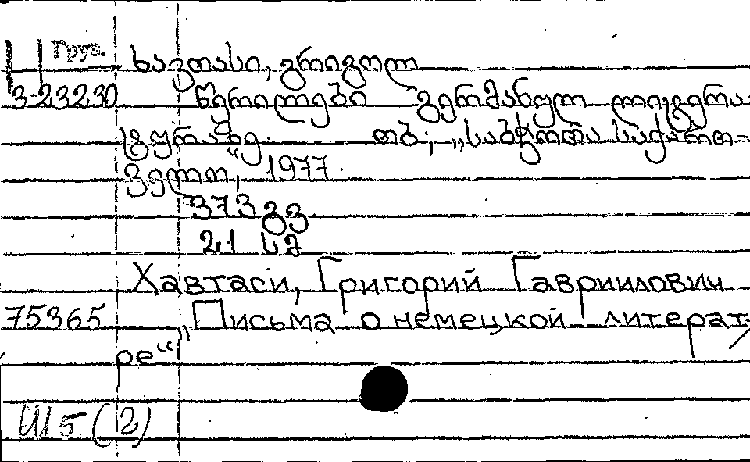 Груз.
ხავთასი, გრიგოლ
3-23230 წერილები გერმანულ ლიტერა-
ტურაზე. თბ., „საბჭოთა საქართ-
ველო“, 1977.
373 გვ
21 სმ
Хавтаси, Григорий Гавриилович
75365 „Письма о немецкой литерату
ре“
И(2)